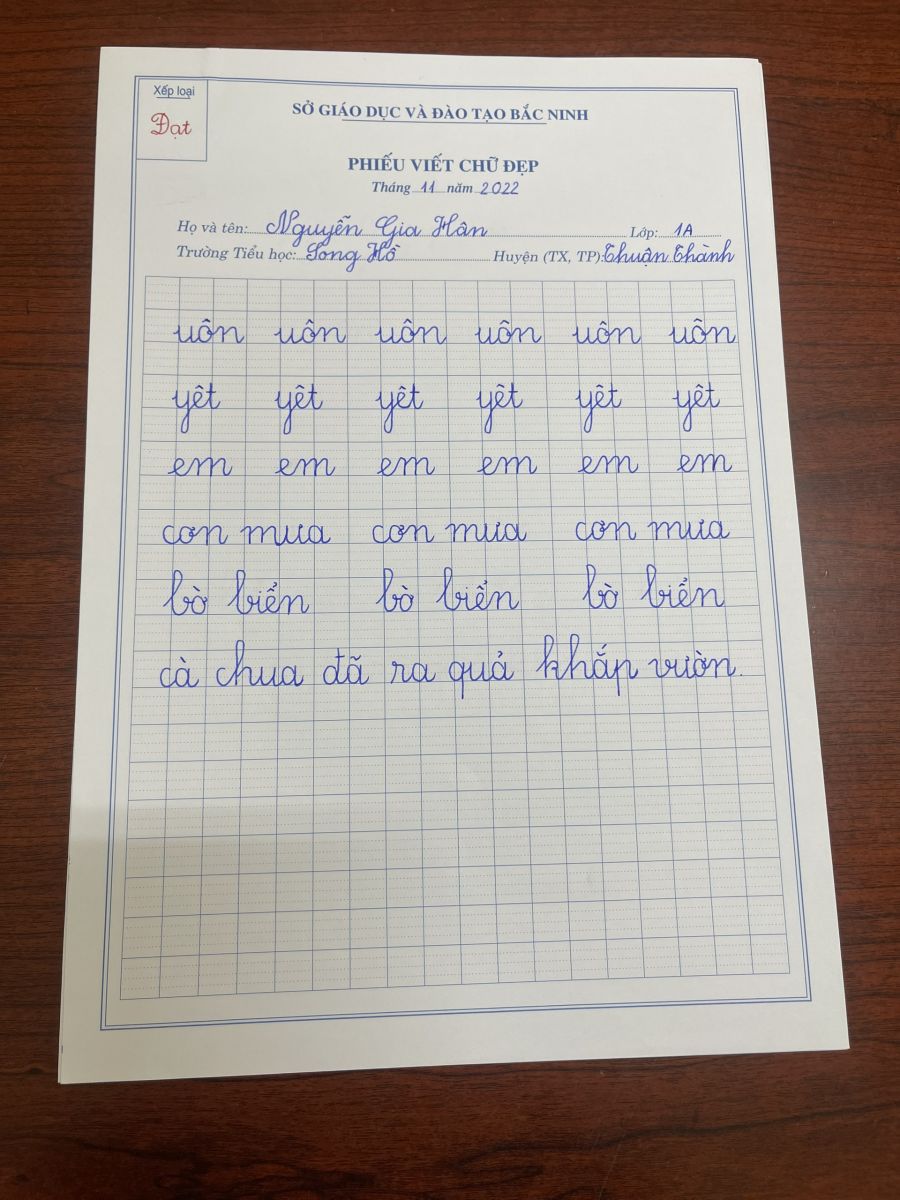 Xếp loại
Đạt
SỞ GIÁO DỤC VÀ ĐÀO TẠO BẮC NINH
PHIẾU VIẾT CHỮ ĐẸP
Tháng 11 năm 2022
Họ và tên: Nguyễn Gia Hân Lớp: 1A
Trường Tiểu học: Song Hồ Huyện (TX, TP): Thuận Thành
uôn uôn uôn uôn uôn uôn
yêt yêt yêt yêt yêt yêt
em em em em em em
cơn mưa cơn mưa cơn mưa
bò biển bò biển bò biển
cà chua đã ra quả khắp vườn.